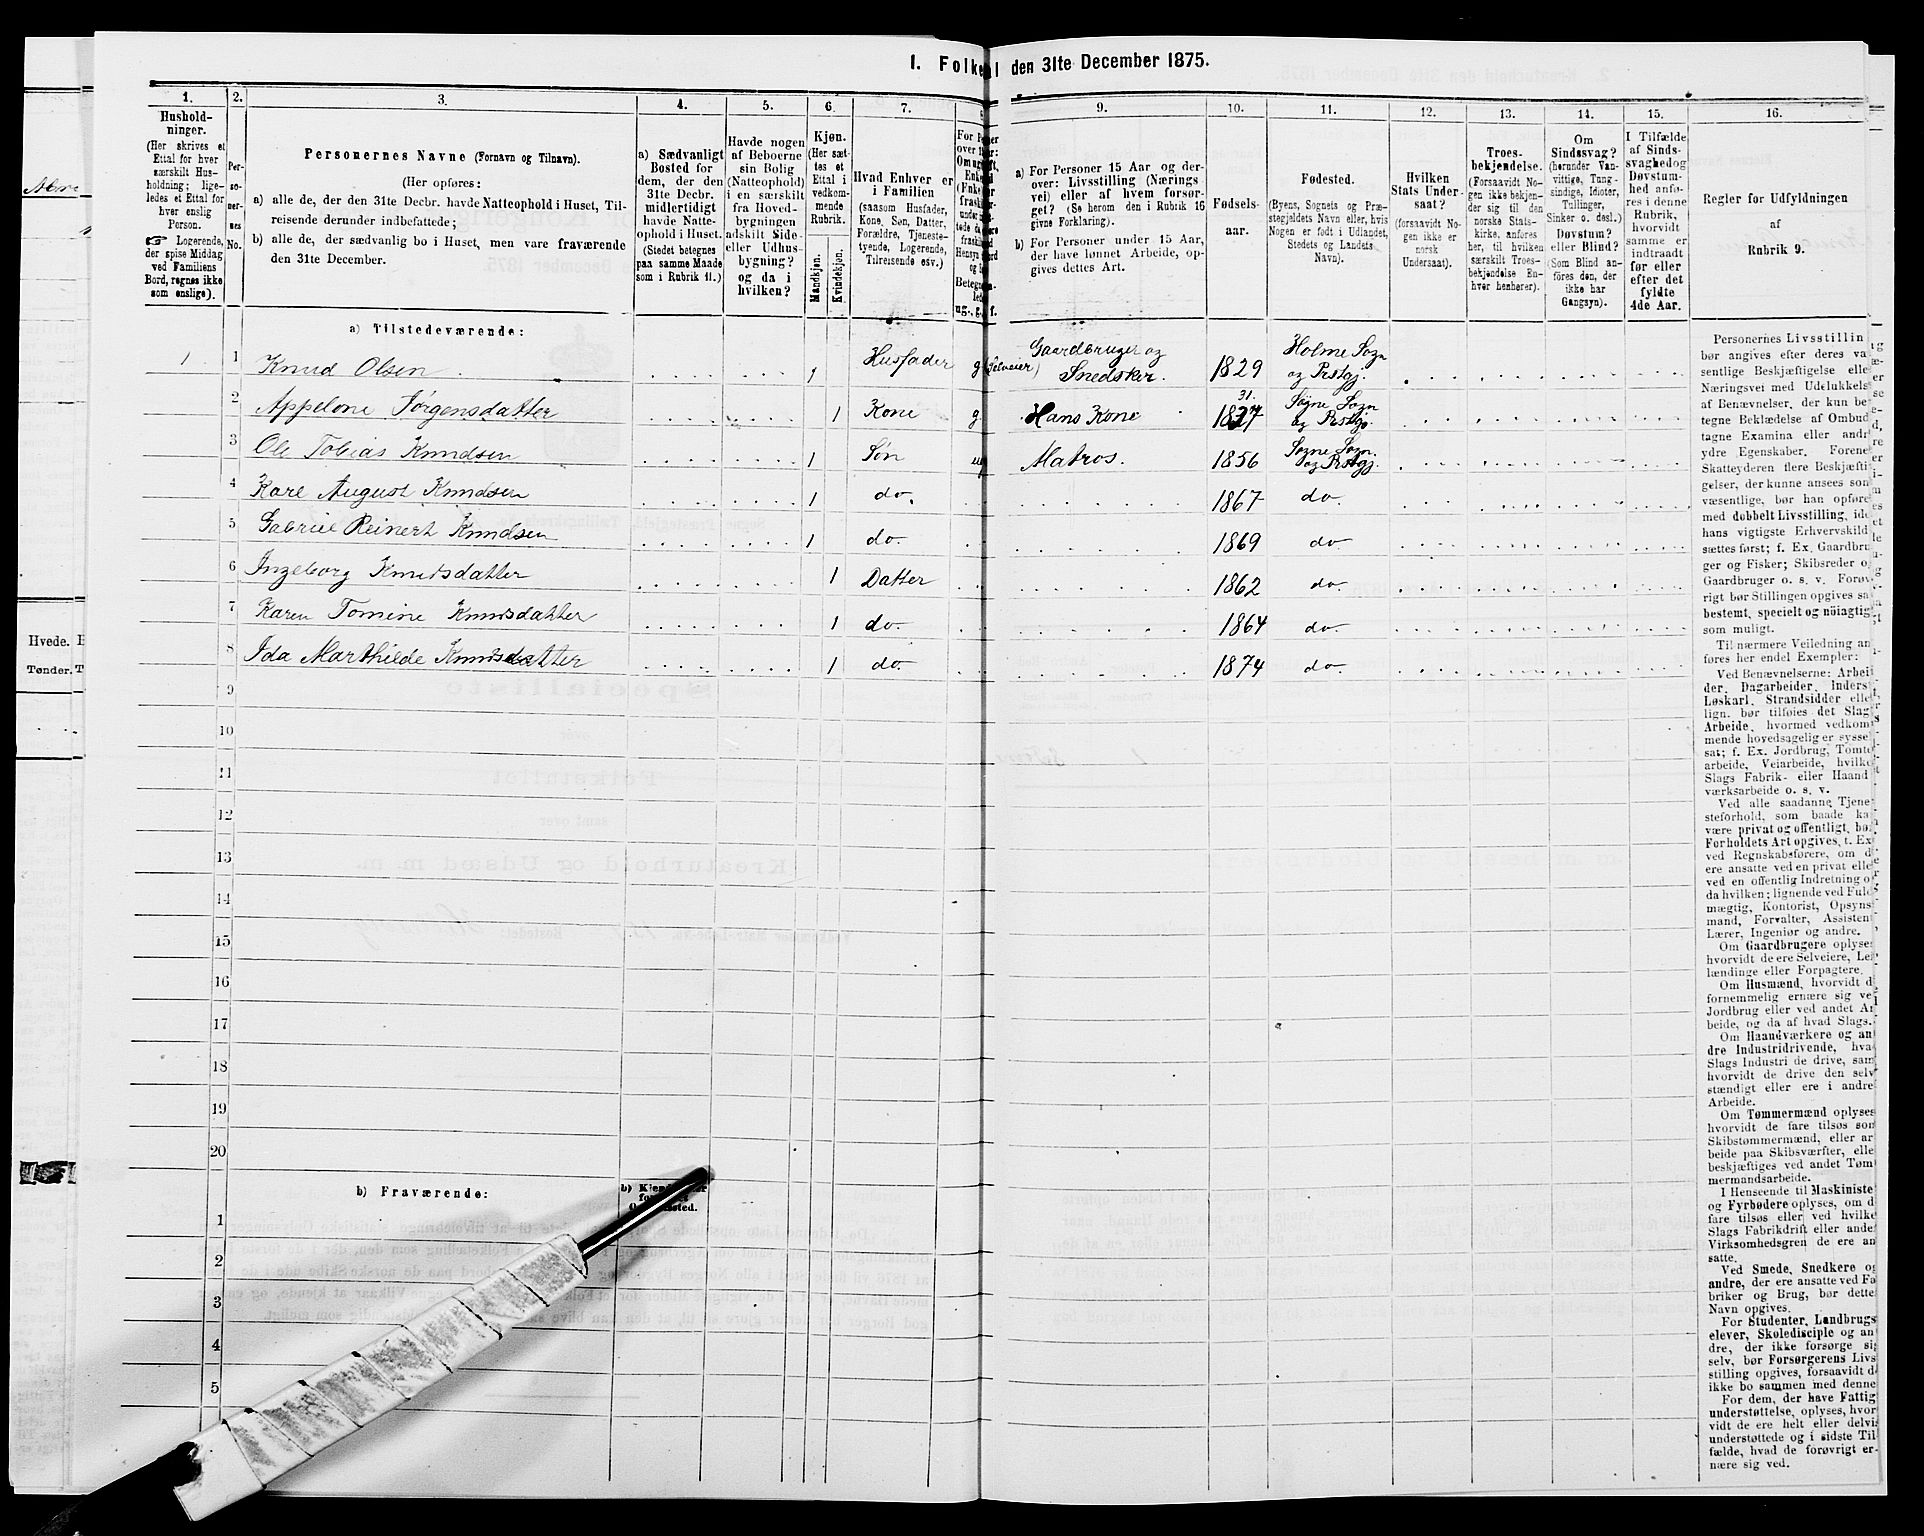 I. Folke l den 31te December 1875.
1.
2.
3.
4.
5.
6.
7.
9.
10.
11.
12.
13.
14.
15.
16.
Hushold-
ninger.
(Her skrives et
Ettal for hver
særskilt Hus-
holdning; lige-
ledes et Ettal for
hver enslig
Person.
☞ Logerende,
der spise Middag
ved Familiens
Bord, regnes ikke
som enslige).
Per-
so-
ner-
nes
No.
Personernes Navne (Fornavn og Tilnavn).
(Her opføres:
a) alle de, der den 31te Decbr. havde Natteophold i Huset, Til-
reisende derunder indbefattede;
b) alle de, der sædvanlig bo i Huset, men vare fraværende
den 31te December.
a) Sædvanligt
Bosted for
dem, der den
31te Decbr.
midlertidigt
havde Natte-
ophold i Huset.
(Stedet betegnes
paa samme Maade
som i Rubrik 11.)
Havde nogen
af Beboerne
sin Bolig
(Natteophold)
i en særskilt
fra Hoved-
bygningen
adskilt Side-
eller Udhus-
bygning?
og da i
hvilken?
Kjøn.
(Her sæt-
tes et
Ettal i
vedkom-
mende
Rubrik.
Mandkjøn.
Kvindekjøn.
Hvad Enhver er
i Familien
(saasom Husfader,
Kone, Søn, Datter,
Forældre, Tjeneste-
tyende, Logerende,
Tilreisende osv.)
a) For Personer 15 Aar og der-
over: Livsstilling (Nærings-
vei) eller af hvem forsør-
get? (Se herom den i Rubrik 16
givne Forklaring).
b) For Personer under 15 Aar,
der have lønnet Arbeide, op-
gives dettes Art.
Fødsels-
aar.
Fødested.
(Byens, Sognets og Præ-
stegjeldets Navn eller, hvis
Nogen er født i Udlandet,
Stedets og Landets
Navn).
Hvilken
Stats Under-
saat?
(forsaavidt No-
gen ikke er
norsk
Undersaat).
Troes-
bekjendelse.
(Forsaavidt No-
gen ikke bekjen-
der sig til den
norske Stats-
kirke, anføres
her, til hvilken
særskilt Troes-
bekjendelse En-
hver henhører).
Om
Sindssvag?
(herunder Van-
vittige, Tung-
sindige, Idioter,
Tullinger,
Sinker o. desl.)
Døvstum?
eller Blind?
(Som Blind an-
føres den, der
ikke har
Gangsyn).
I Tilfælde
af Sinds-
svaghed og
Døvstum-
hed anfø-
res i denne
Rubrik,
hvorvidt
samme er
indtraadt
før eller
efter det
fyldte
4de Aar.
Regler for Udfyldningen
af
Rubrik 9.
a) Tilstedeværende:
1 1 Knud Olsen 1 Husfader g (Selveier) Gaardbruger og Snedsker. 1829 Holme Sogn og Prstgj.
2 Appelone Jørgensdatter 1 Kone g Hans Kone 1837 31. Søgne Sogn og Prstgj.
3 Ole Tobias Knudsen 1 Søn ug Matros. 1856 Søgne Sogn og Prstgj.
4 Karl August Knudsen 1 do. 1867 do
5 Gabriel Reinert Knudsen 1 do. 1869 do
6 Ingeborg Knudsdatter 1 Datter 1862 do
7 Karen Tomine Knudsdatter 1 do. 1864 do
8 Ida Marthilde Knudsdatter 1 do. 1874 do
9
10
11
12
13
14
15
16
17
18
19
20
b) Fraværende:
1
2
3
4
5
Personernes Livsstillin
bør angives efter deres va
sentlige Beskjæftigelse elle
Næringsvei med Udelukkels
af Benævnelser, der kun be
tegne Beklædelse af Ombud
tagne Examina eller andr
ydre Egenskaber. Forene
Skatteyderen flere Beskjæfti
gelser, der kunne ansees som
væsentlige, bør han opføre
med dobbelt Livsstilling, ide
hans vigtigste Erhvervskild
sættes først; f. Ex. Gaardbru
ger og Fisker; Skibsreder o
Gaardbruger o. s. v. Forøv
rigt bør Stillingen opgives sa
bestemt, specielt og nöiagtig
som muligt.
Til nærmere Veiledning an
føres her endel Exempler:
Ved Benævnelserne: Arbei
der, Dagarbeider, Inders
Løskarl, Strandsidder elle
lign. bør tilføies det Slag
Arbeide, hvormed vedkom
mende hovedsagelig er sysse
sat; f. Ex. Jordbrug, Tomte
arbeide, Veiarbeide, hvilke
Slags Fabrik- eller Haand
værksarbeide o. s. v.
Ved alle saadanne Tjene
steforhold, som baade ka
være privat og offentligt, bø
Forholdets Art opgives, t. Ex
ved Regnskabsførere, om d
ere ansatte ved en privat elle
ved en offentlig Indretning o
da hvilken; lignende ved Fuld
mægtig, Kontorist, Opsyns
mand, Forvalter, Assisten
Lærer, Ingeniør og andre.
Om Gaardbrugere oplyses
hvorvidt de ere Selveiere, Lei
lændinge eller Forpagtere.
Om Husmænd, hvorvidt d
fornemmelig ernære sig ve
Jordbrug eller ved andet Ar
beide, og da af hvad Slags.
Om Haandværkere og an
dre Industridrivende, hva
Slags Industri de drive, sam
hvorvidt de drive den selv
stændigt eller ere i andre
Arbeide.
Om Tømmermænd oplyses
hvorvidt de fare tilsøs som
Skibstømmermænd, eller ar
beide paa Skibsværfter, elle
beskjæftiges ved andet Tøm
mermandsarbeide.
I Henseende til Maskiniste
og Fyrbødere oplyses, om d
fare tilsøs eller ved hvilke
Slags Fabrikdrift eller ande
Virksomhedsgren de ere an
satte.
Ved Smede, Snedkere og
andre, der ere ansatte ved Fa
briker og Brug, bør dette
Navn opgives.
For Studenter, Landbrugs
elever, Skoledisciple og an
dre, der ikke forsørge sig
selv, bør Forsørgerens Livs
stilling opgives, forsaavidt d
ikke bo sammen med denne
For dem, der have Fattig
understøttelse, oplyses, hvor
vidt de ere helt eller delvi
understøttede og i sidste Til
fælde, hvad de forøvrigt er-
nære sig ved.
Hvede.
Tønder.